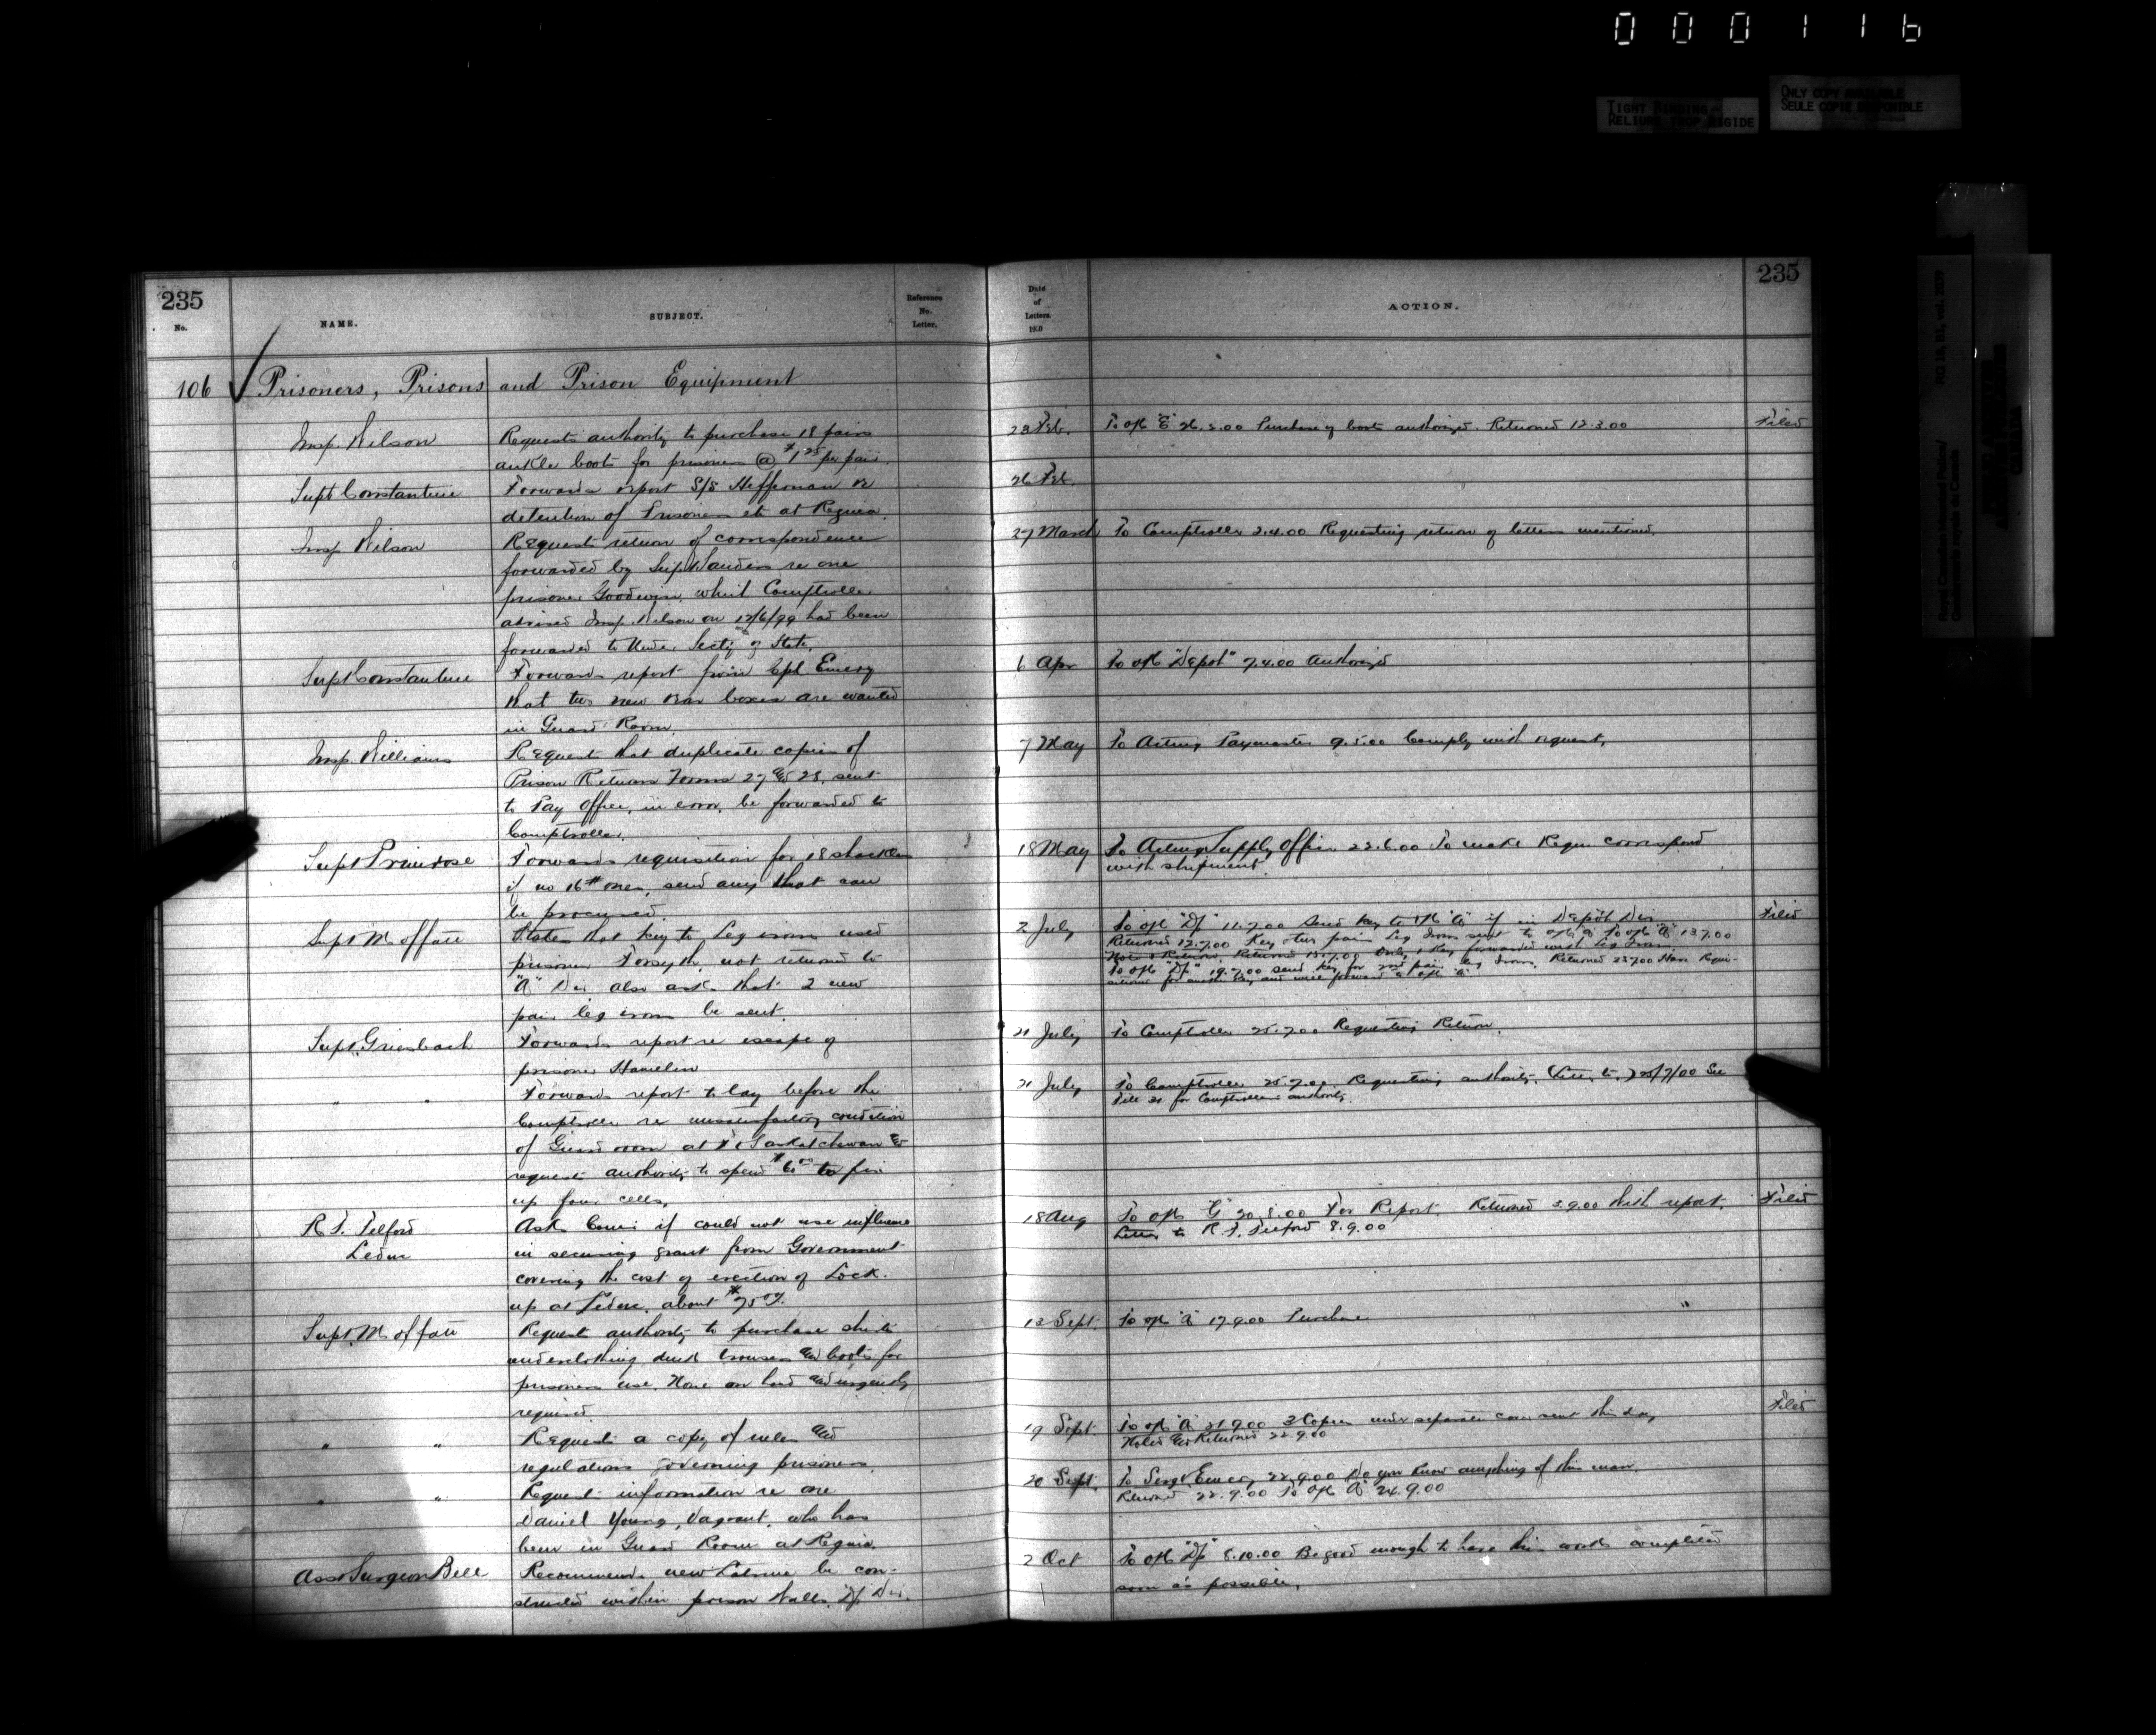 000116
TIGHT BINDING
RELIURE TROP RIGIDE
ONLY COPY AVAILABLE
SEULE COPIE DISPONIBLE
235
No.
NAME.
SUBJECT.
Reference
No.
Letter.
Date
of
Letters.
190
ACTION.
235
106 ✓ Prisoners, Prisons and Prison Equipment
Insp. Wilson
Requests authority to purchase 18 pairs
ankle boots for prisoners @ $1.25 per pair.
23 Feb.
To o/c "E" 26.2.00 Purchase of boots authorized. Returned 12.3.00
Filed
Supt Constantine
Forwards report S/S Heffernan re
detention of Prisoners etc at Regina.
26 Feb.
Insp. Wilson
Requests return of correspondence
forwarded by Supt Sanders re one
prisoner Goodwin, which Comptroller
advised Insp. Wilson on 12/6/99 had been
forwarded to Under Secty of State.
27 March
To Comptroller 2.4.00 Requesting return of letters mentioned.
Supt Constantine
Forwards report from Cpl Emery
that two new boxes are wanted
in Guard Room.
6 Apr
To o/c "Depot" 7.4.00 Authorized
Insp. Williams
Request that duplicate copies of
Prison Returns Forms 27 & 28, sent
to Pay Office, in error, be forwarded to
Comptroller.
7 May
To Acting Paymaster 9.5.00 Comply with request.
Supt Primrose
Forwards requisition for 18 shackles
if no 16# ones, send any that can
be procured.
18 May
To Acting Supply Officer 22.6.00 To make Requn correspond
with shipment.
Supt Moffatt
States that key to Leg irons used
prisoner Forsyth, not returned to
"A" Div. also asks that 2 new
pair leg irons be sent.
2 July
To o/c "Dp" 11.7.00 Send key to o/c "A" if in Depot Div.
Returned 12.7.00 Key other pair Leg Irons sent to o/c "A" To o/c "A" 13.7.00
Note & Return. Returned 18.7.00 Only 1 Key forwarded with Leg Irons.
To o/c "Dp" 19.7.00 send key for 2nd pair leg Irons. Returned 23.7.00 Have Requi-
sitioned for another key and will forward to o/c "A"
Filed
Supt. Griesbach
Forwards report re escape of
prisoner Hamelin
21 July
To Comptroller 25.7.00 Requesting Return.
" "
Forwards report to lay before the
Comptroller re unsatisfactory condition
of Guard room at Ft Saskatchewan &
requests authority to spend to fix
up four cells.
21 July
To Comptroller 25.7.00. Requesting authority. (Letter to) 25/7/00 See
File 21 for Comptroller's authority.
R. T. Telford
Leduc
Asks Comr if could not use influence
in securing grant from Government
covering the cost of erection of Lock-
up at Leduc, about $75.00.
18 Aug
To o/c "G" 20.8.00 For Report. Returned 3.9.00 With report.
Letter to R. T. Telford 8.9.00
Filed
Supt. Moffatt
Request authority to purchase shirts
underclothing duck trousers & boots for
prisoners use. None on hand & urgently
required.
13 Sept.
To o/c "A" 17.9.00 Purchase
"
" "
Requests a copy of rules &
regulations governing prisoners.
19 Sept.
To o/c "A" 21.9.00 3 Copies under separate cover sent this day
Noted & Returned 22.9.00
Filed
" "
Request information re one
Daniel Young, Vagrant, who has
been in Guard Room at Regina.
20 Sept.
To Sergt Emery 22.9.00 Do you know anything of this man.
Returned 22.9.00 To o/c "A" 24.9.00
Asst Surgeon Bell
Recommends new Latrine be con-
structed within prison Walls, "Dp" Div.
2 Oct
To o/c "Dp" 8.10.00 Be good enough to have this work completed
soon as possible.